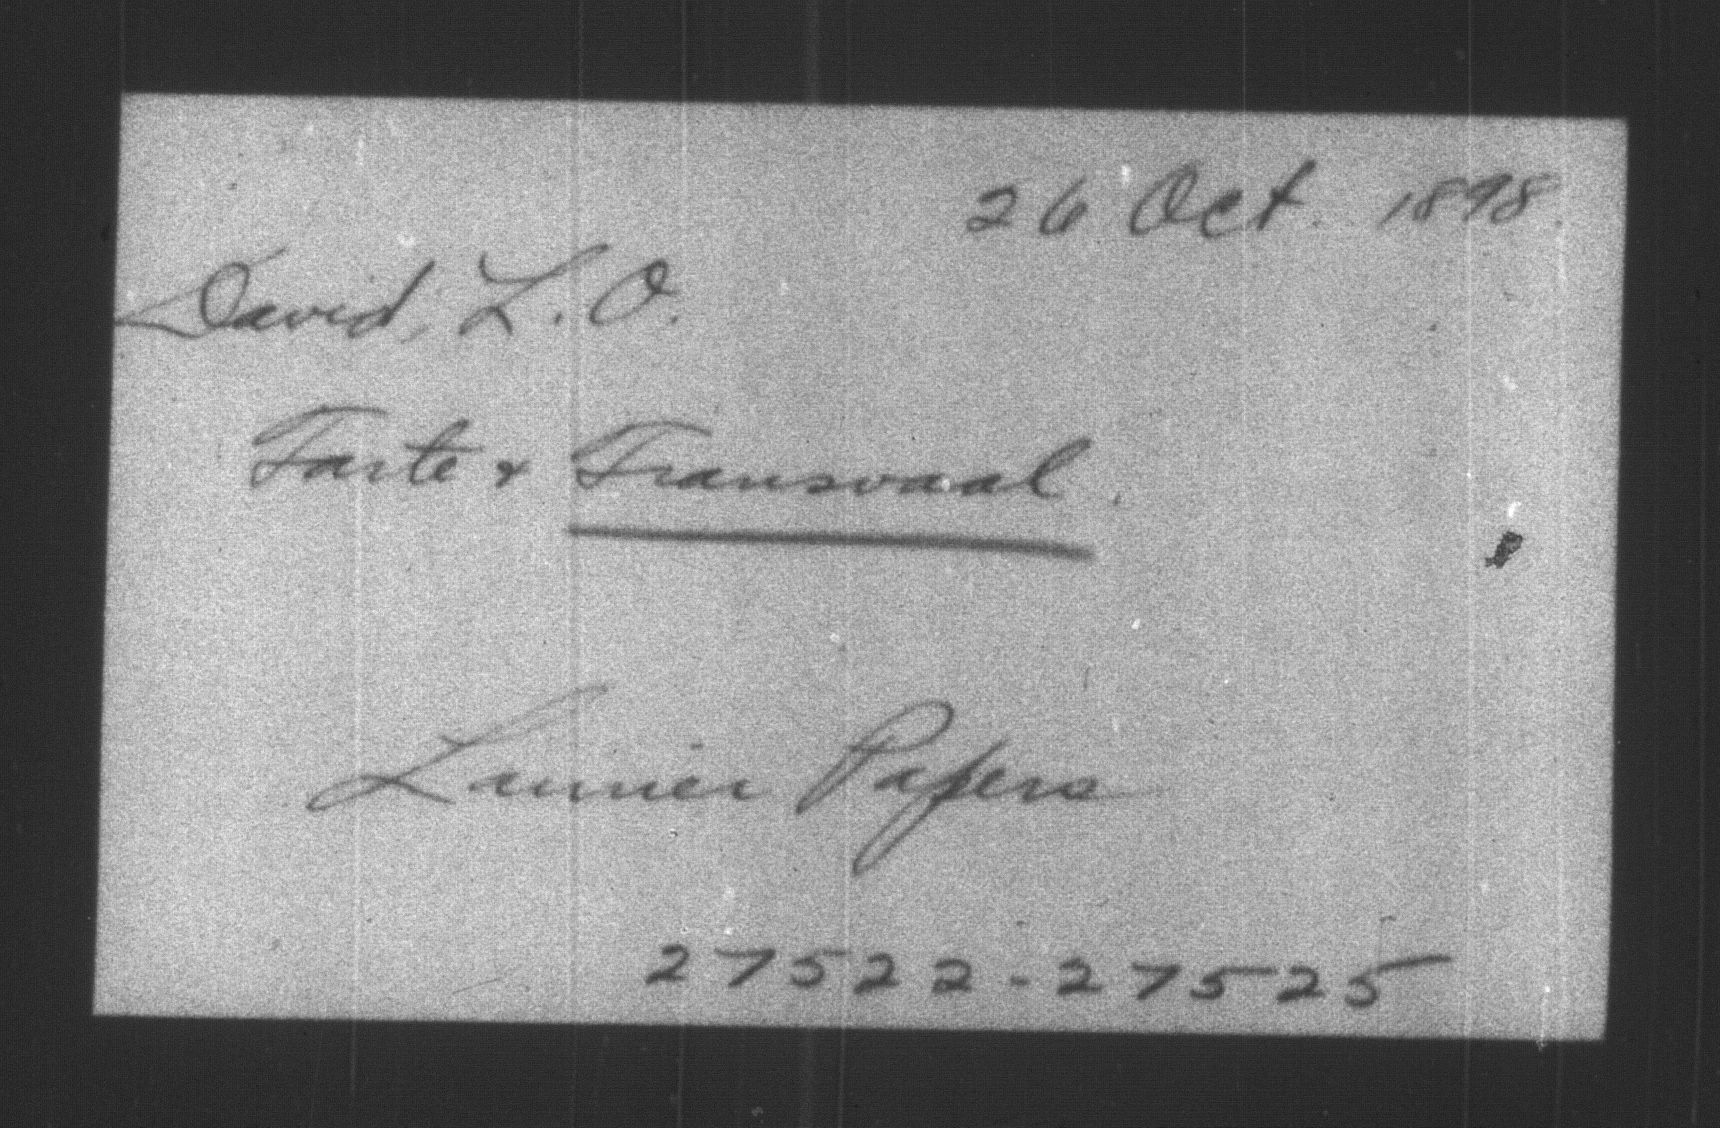 26 Oct. 1898.
David, L. O.
Tarte & Transvaal.
Laurier Papers
27522-27525